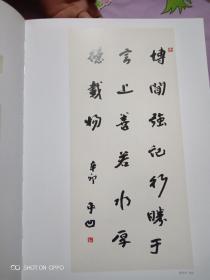 博闻强记行胜于
言上善若水厚
德载物
辛卯 平凹
SHOT ON OPPO